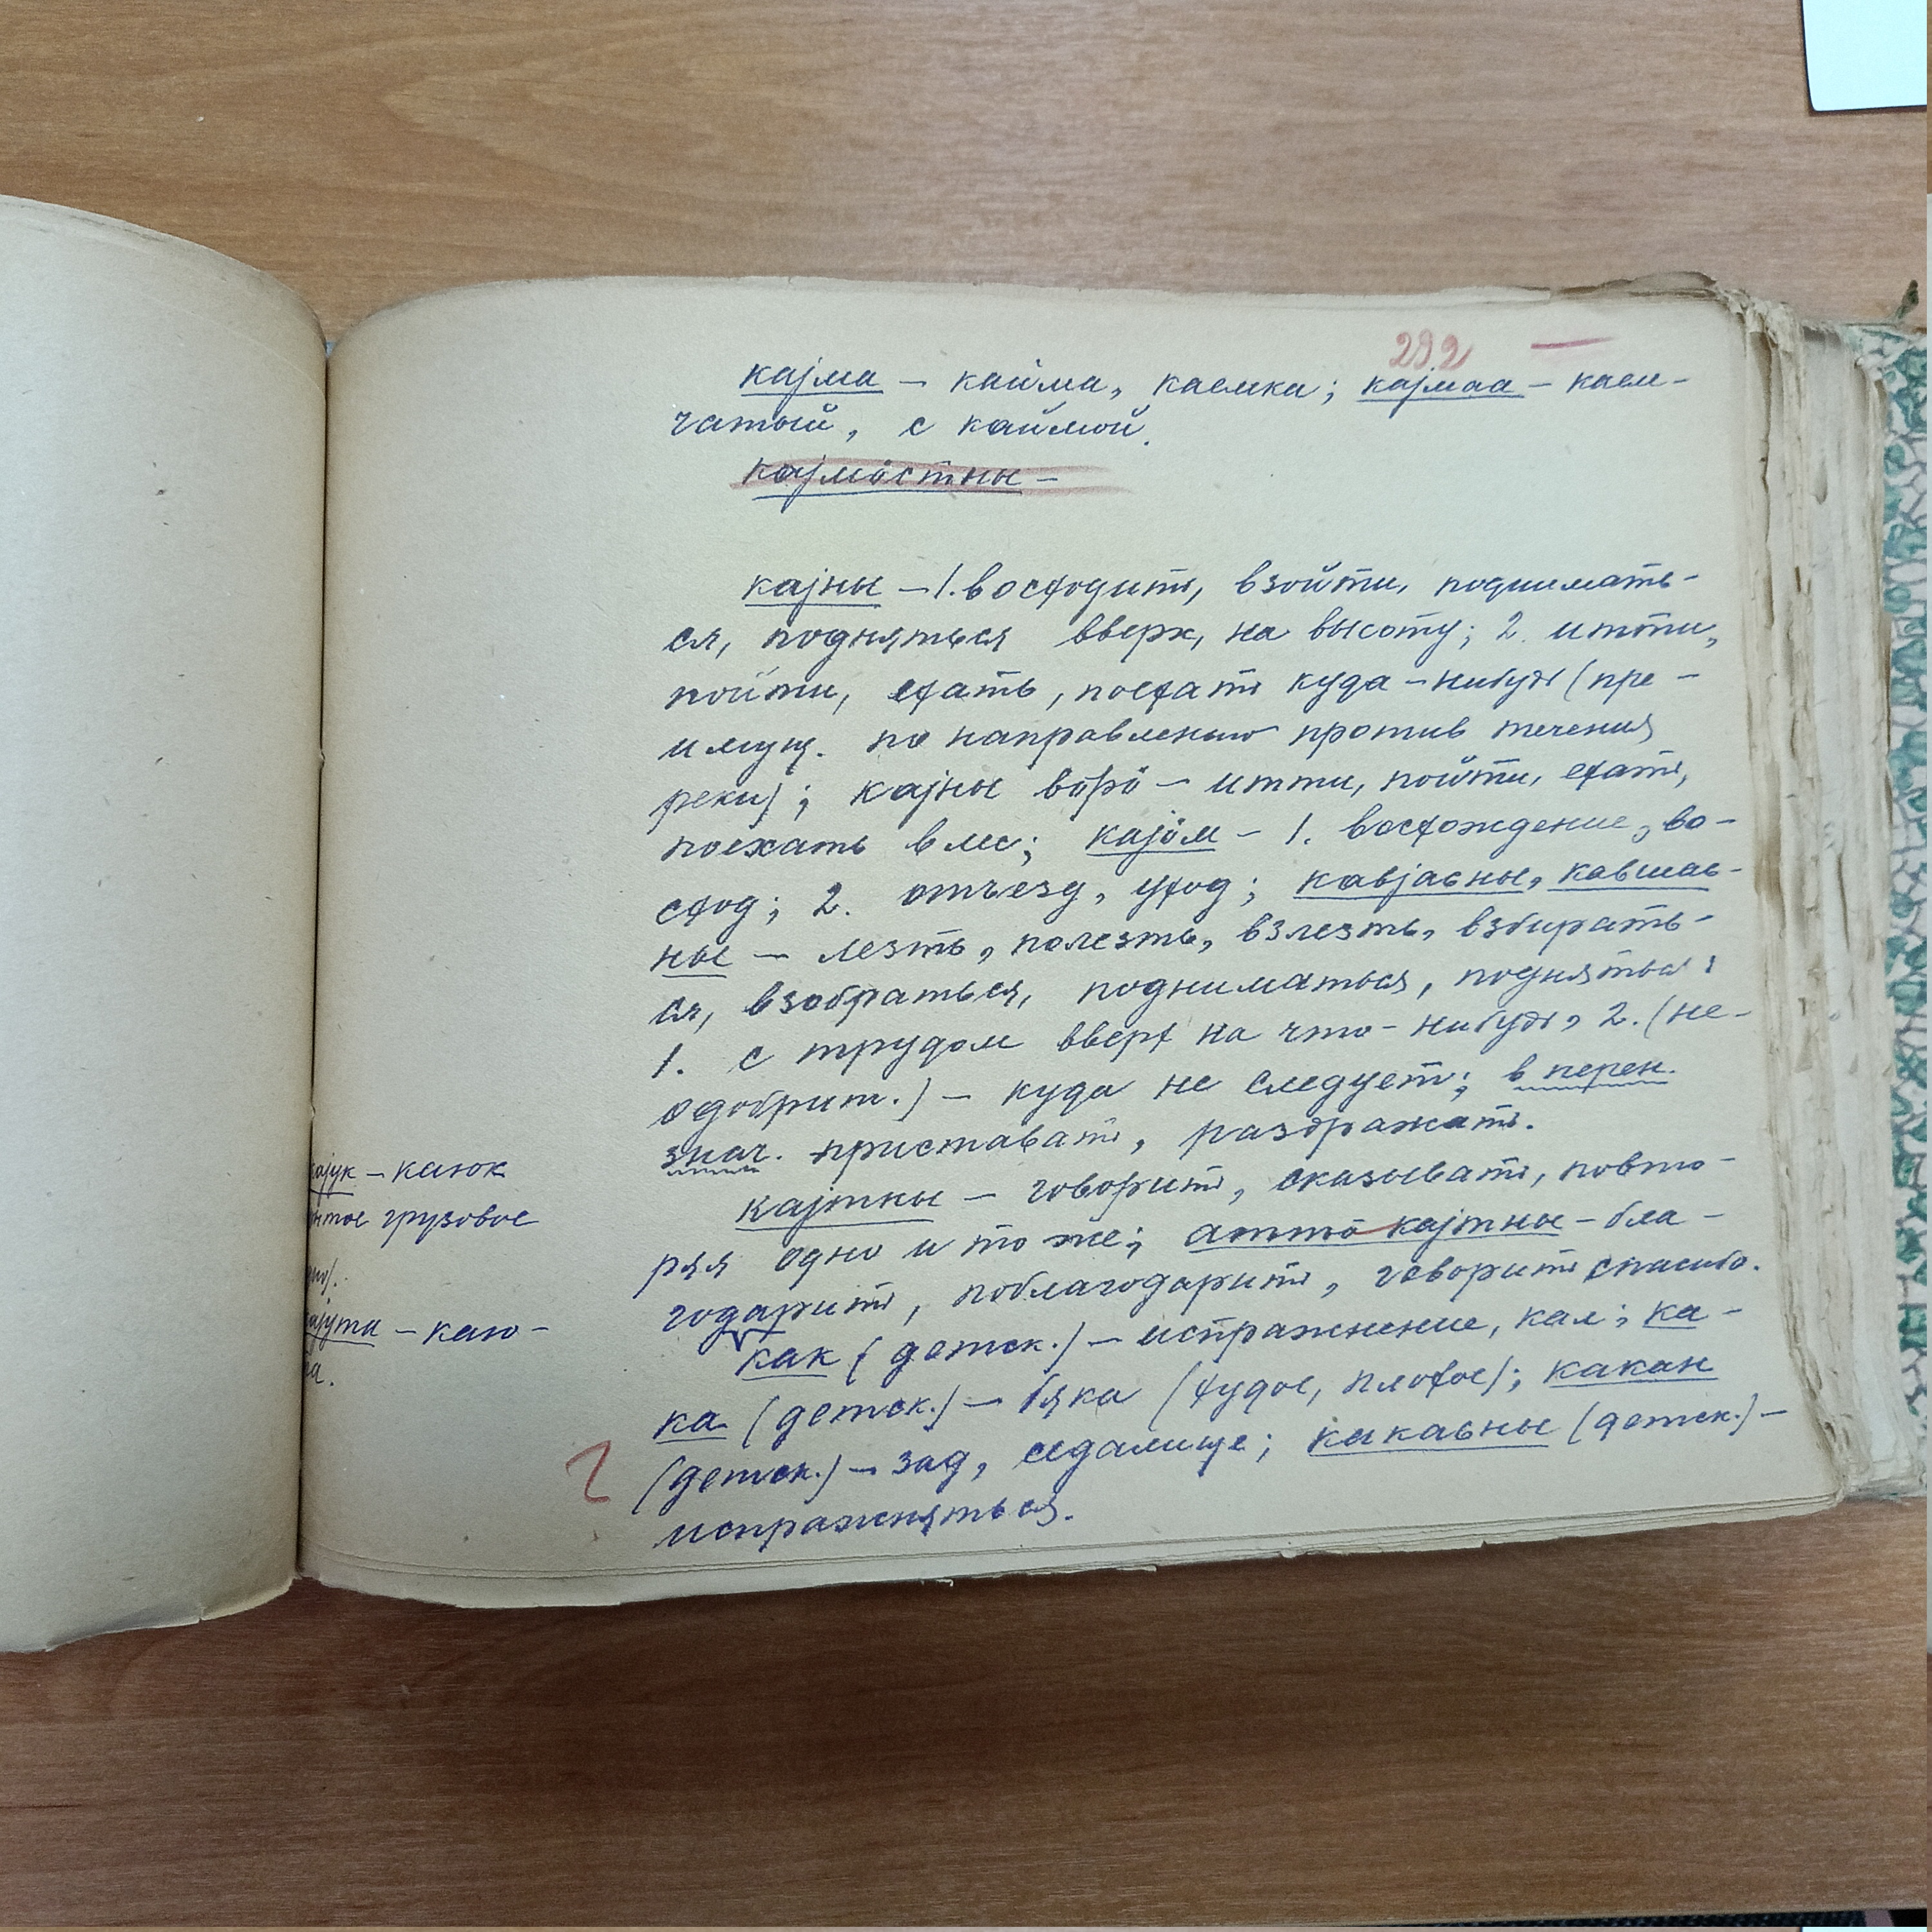 292 —
кајма — кайма, каемка; кајмаа — каем-
чатый, с каймой.
кајмöстны —
кајны — 1. восходить, взойти, поднимать-
ся, подняться вверх, на высоту; 2. итти,
пойти, ехать, поехать куда-нибудь (пре-
имущ. по направлению против течения
реки); кајны вöрö — итти, пойти, ехать,
поехать в лес; кајöм — 1. восхождение, во-
сход; 2. отъезд, уход; кавјавны, кавшав-
ны — лезть, полезть, взлезть, взбирать-
ся, взобраться, подниматься, подняться:
1. с трудом вверх на что-нибудь, 2. (не-
одобрит.) — куда не следует; в перен.
знач. приставать, раздражать.
кајтны — говорить, сказывать, повто-
ряя одно и то же; аттö кајтны — бла-
годарить, поблагодарить, говорить спасибо.
как (детск.) — испражнение, кал; ка-
ка (детск.) — бяка (худое, плохое); какан
(детск.) — зад, седалище; какавны (детск.) —
испражняться.
ајук — каюк
ытое грузовое
ајута — каю-
та.